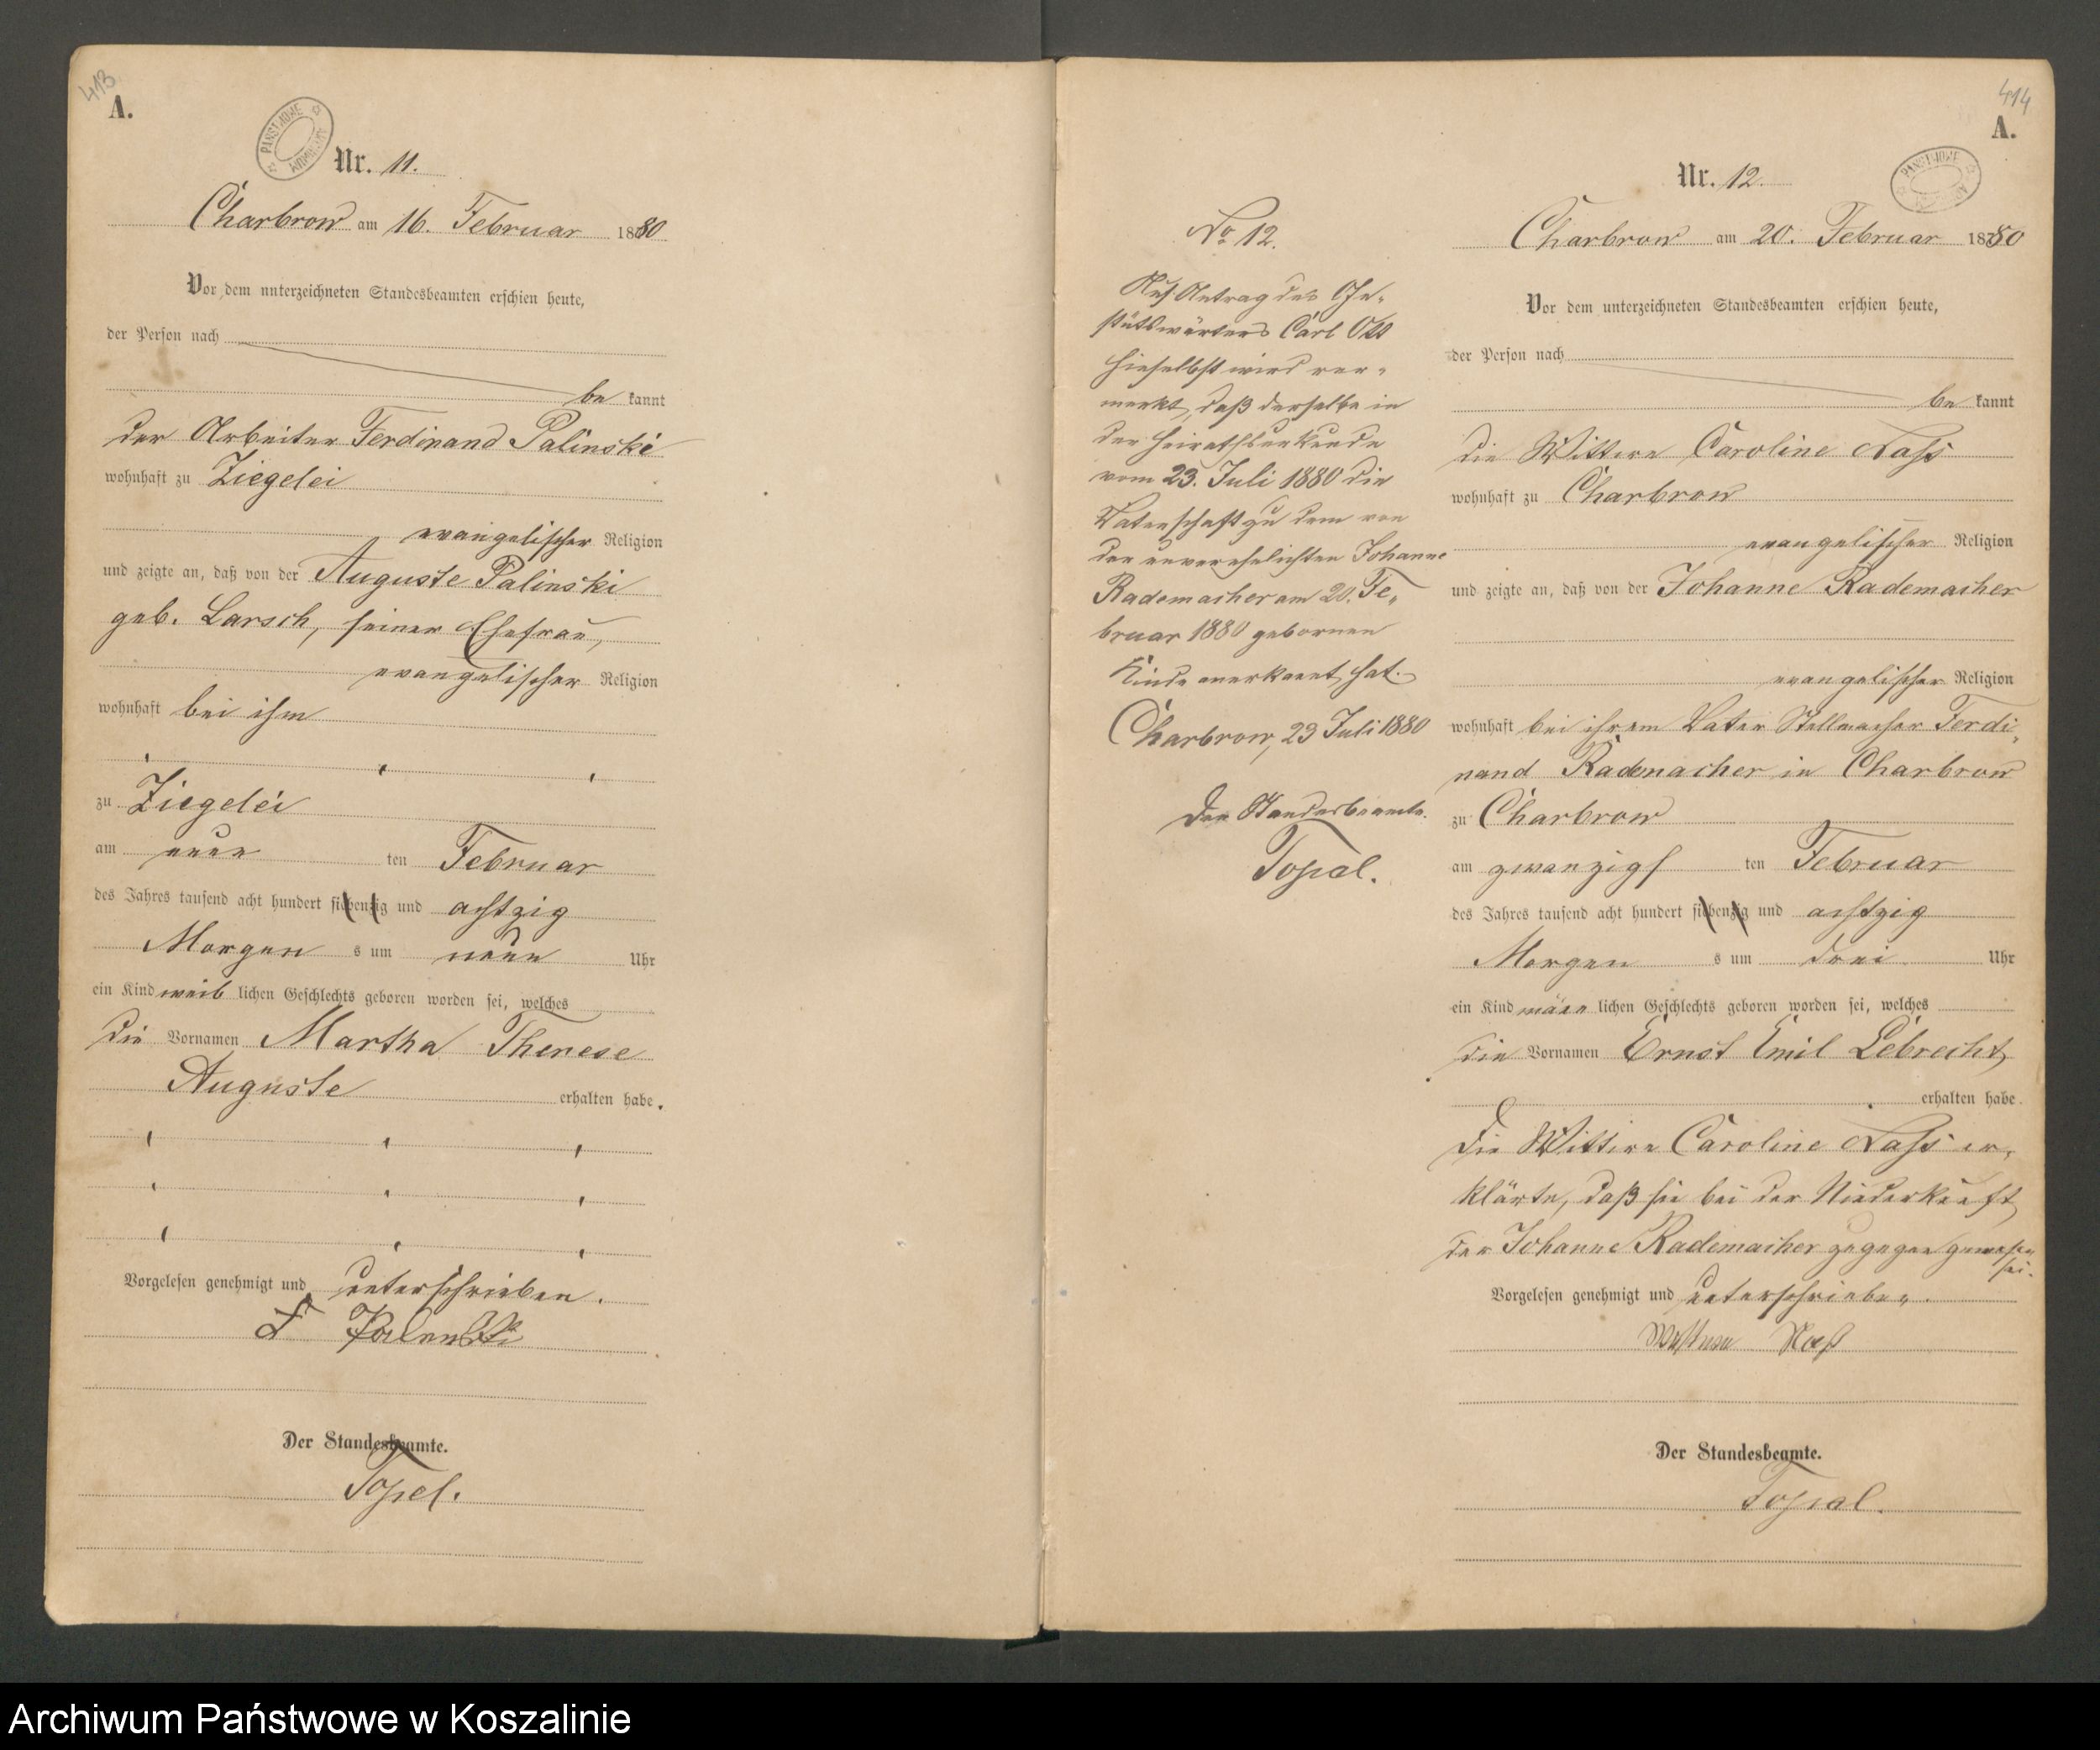 413
A.
PAŃSTWOWE
ARCHIWUM
Nr. 11.
Charbrow am 16. Februar 1880
Vor dem unterzeichneten Standesbeamten erschien heute,
der Person nach
be kannt
der Arbeiter Ferdinand Palinski
wohnhaft zu Ziegelei
evangelischer Religion
und zeigte an, daß von der Auguste Palinski
geb. Larsch, seiner Ehefrau,
evangelischer Religion
wohnhaft bei ihm
zu Ziegelei
am neun ten Februar
des Jahres tausend acht hundert siebenzig und achtzig
Morgen s um neun Uhr
ein Kind weib lichen Geschlechts geboren worden sei, welches
die Vornamen Martha Therese
Auguste erhalten habe.
Vorgelesen genehmigt und unterschrieben.
F Palenski
Der Standesbeamte.
Topel.
414
A.
PAŃSTWOWE
Nr. 12.
Charbrow am 20. Februar 1880
Vor dem unterzeichneten Standesbeamten erschien heute,
der Person nach
be kannt
die Wittwe Caroline Nass
wohnhaft zu Charbrow
evangelischer Religion
und zeigte an, daß von der Johanne Rademacher
evangelischer Religion
wohnhaft bei ihrem Vater Stellmacher Ferdi-
nand Rademacher in Charbrow
zu Charbrow
am zwanzigs ten Februar
des Jahres tausend acht hundert siebenzig und achtzig
Morgen s um drei Uhr
ein Kind männ lichen Geschlechts geboren worden sei, welches
die Vornamen Ernst Emil Lebrecht
erhalten habe.
Die Wittwe Caroline Nass er-
klärte, daß sie bei der Niederkunft
der Johanne Rademacher zugegen gewesen
sei.
Vorgelesen genehmigt und unterschrieben.
Wittwe Naß
Der Standesbeamte.
Topel.
No 12.
Auf Antrag des Ge-
stütswärters Carl Ott
hieselbst wird ver-
merkt, daß derselbe in
der Heirathsurkunde
vom 23. Juli 1880 die
Vaterschaft zu dem von
der unverehelichten Johanne
Rademacher am 20. Fe-
bruar 1880 gebornen
Kinde anerkannt hat.
Charbrow, 23 Juli 1880
Der Standesbeamte.
Topel.
Archiwum Państwowe w Koszalinie